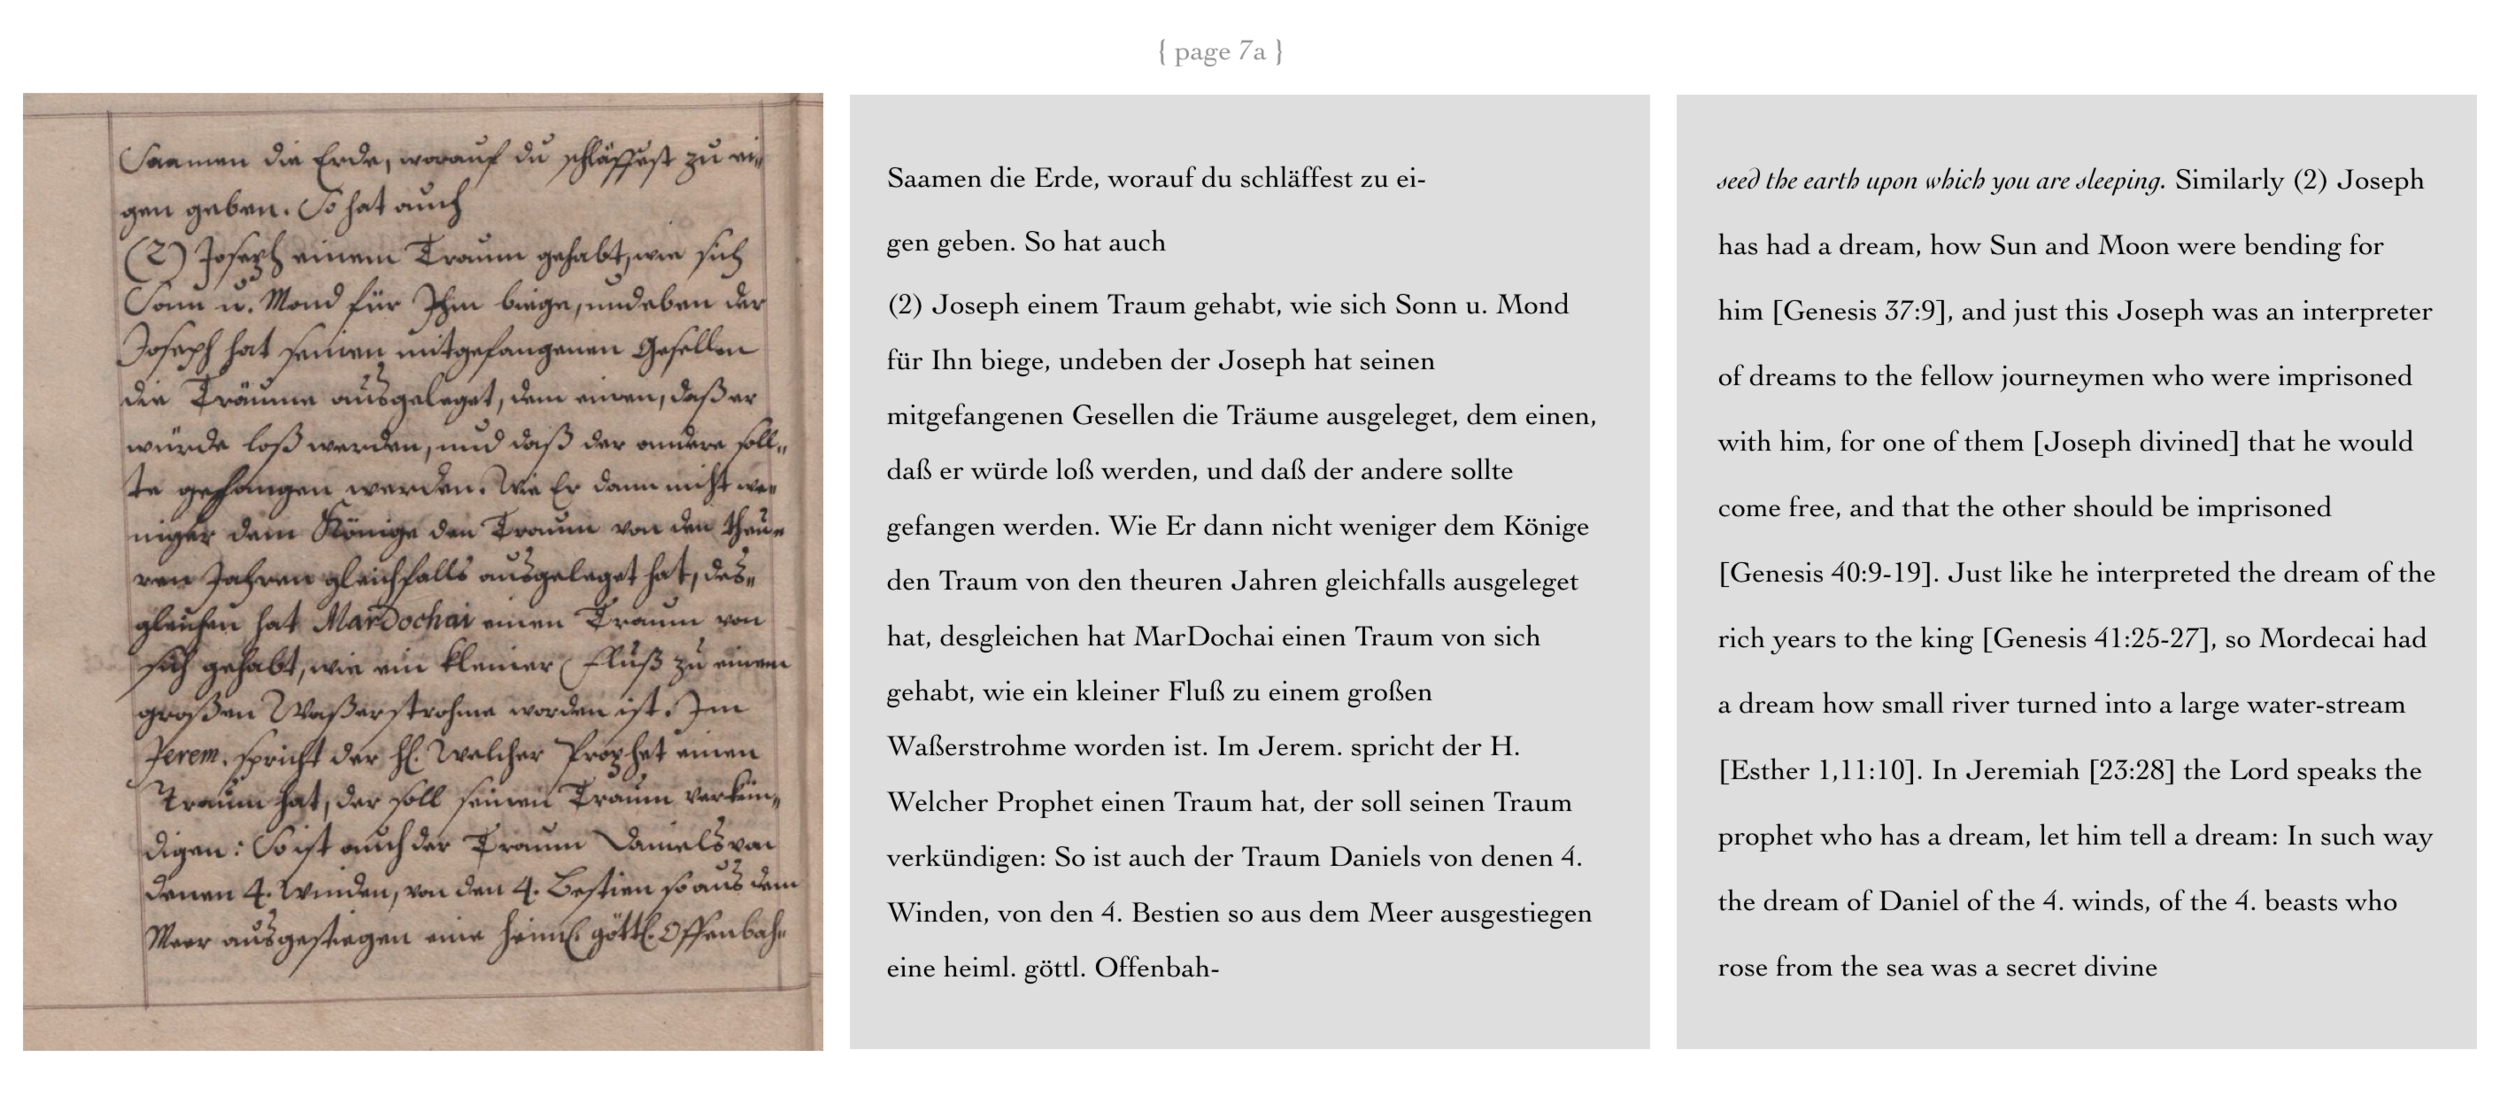 { page 7a }
Saamen die Erde, worauf du schläffest zu ei„
gen geben. So hat auch
(2) Joseph einem Traum gehabt, wie sich
Sonn u. Mond für Ihm biege, undeben der
Joseph hat seinen mitgefangenen Gesellen
die Träume ausgeleget, dem einen, daß er
würde loß werden, und daß der andere soll„
te gefangen werden. Wie Er dann nicht we„
niger dem Könige den Traum von den theu„
ren Jahren gleichfalls ausgeleget hat, des„
gleichen hat MarDochai einen Traum von
sich gehabt, wie ein kleiner Fluß zu einem
großen Waßerstrohme worden ist. Im
Jerem. spricht der H. Welcher Prophet einen
Traum hat, der soll seinen Traum verkün„
digen: So ist auch der Traum Daniels von
denen 4. Winden, von den 4. Bestien so aus dem
Meer ausgestiegen eine heiml. göttl. Offenbah„
Saamen die Erde, worauf du schläffest zu ei-
gen geben. So hat auch
(2) Joseph einem Traum gehabt, wie sich Sonn u. Mond
für Ihn biege, undeben der Joseph hat seinen
mitgefangenen Gesellen die Träume ausgeleget, dem einen,
daß er würde loß werden, und daß der andere sollte
gefangen werden. Wie Er dann nicht weniger dem Könige
den Traum von den theuren Jahren gleichfalls ausgeleget
hat, desgleichen hat MarDochai einen Traum von sich
gehabt, wie ein kleiner Fluß zu einem großen
Waßerstrohme worden ist. Im Jerem. spricht der H.
Welcher Prophet einen Traum hat, der soll seinen Traum
verkündigen: So ist auch der Traum Daniels von denen 4.
Winden, von den 4. Bestien so aus dem Meer ausgestiegen
eine heiml. göttl. Offenbah-
seed the earth upon which you are sleeping. Similarly (2) Joseph
has had a dream, how Sun and Moon were bending for
him [Genesis 37:9], and just this Joseph was an interpreter
of dreams to the fellow journeymen who were imprisoned
with him, for one of them [Joseph divined] that he would
come free, and that the other should be imprisoned
[Genesis 40:9-19]. Just like he interpreted the dream of the
rich years to the king [Genesis 41:25-27], so Mordecai had
a dream how small river turned into a large water-stream
[Esther 1,11:10]. In Jeremiah [23:28] the Lord speaks the
prophet who has a dream, let him tell a dream: In such way
the dream of Daniel of the 4. winds, of the 4. beasts who
rose from the sea was a secret divine